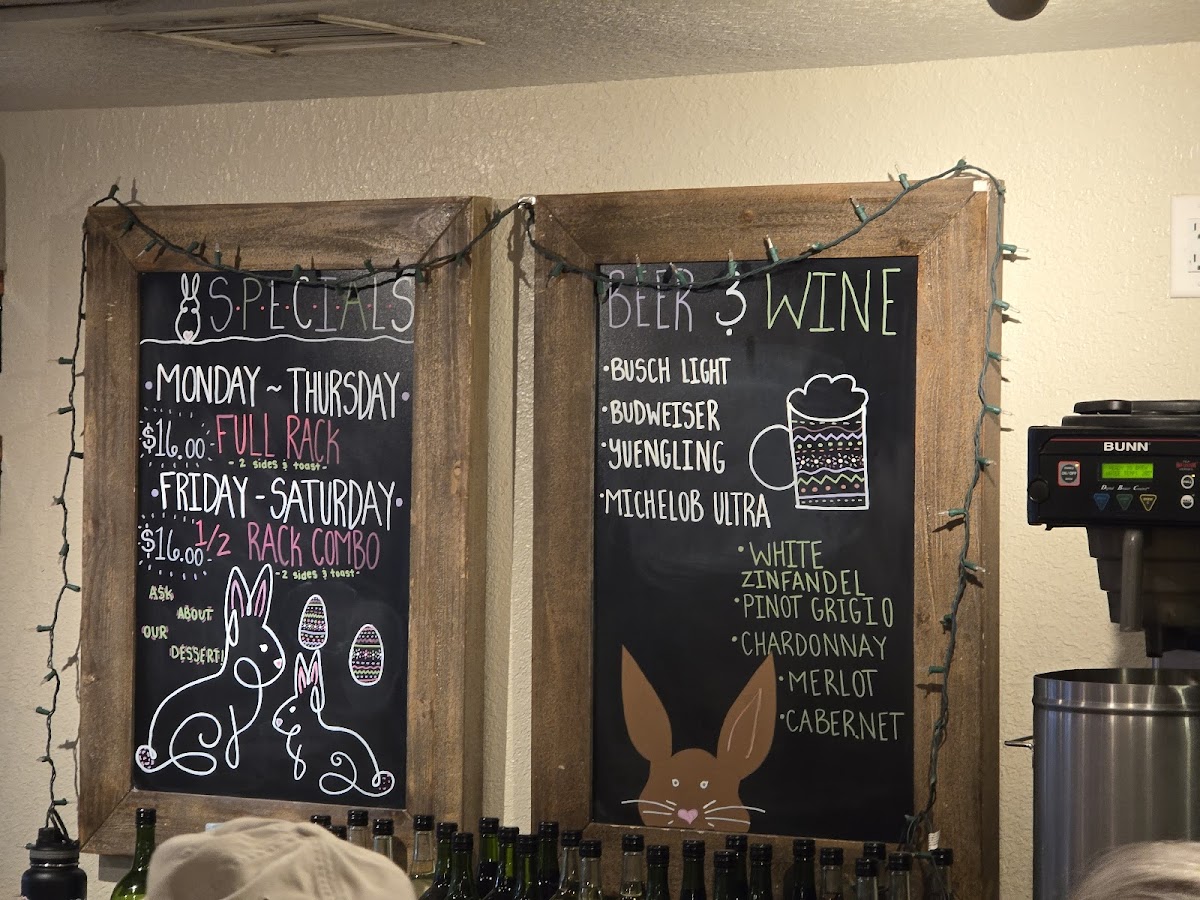 SPECIALS
• MONDAY ~ THURSDAY •
$16.00 FULL RACK
- 2 sides & toast -
• FRIDAY - SATURDAY •
$16.00 1/2 RACK COMBO
- 2 sides & toast -
ASK
ABOUT
OUR
DESSERT!
BEER & WINE
• BUSCH LIGHT
• BUDWEISER
• YUENGLING
• MICHELOB ULTRA
• WHITE
ZINFANDEL
• PINOT GRIGIO
• CHARDONNAY
• MERLOT
• CABERNET
BUNN